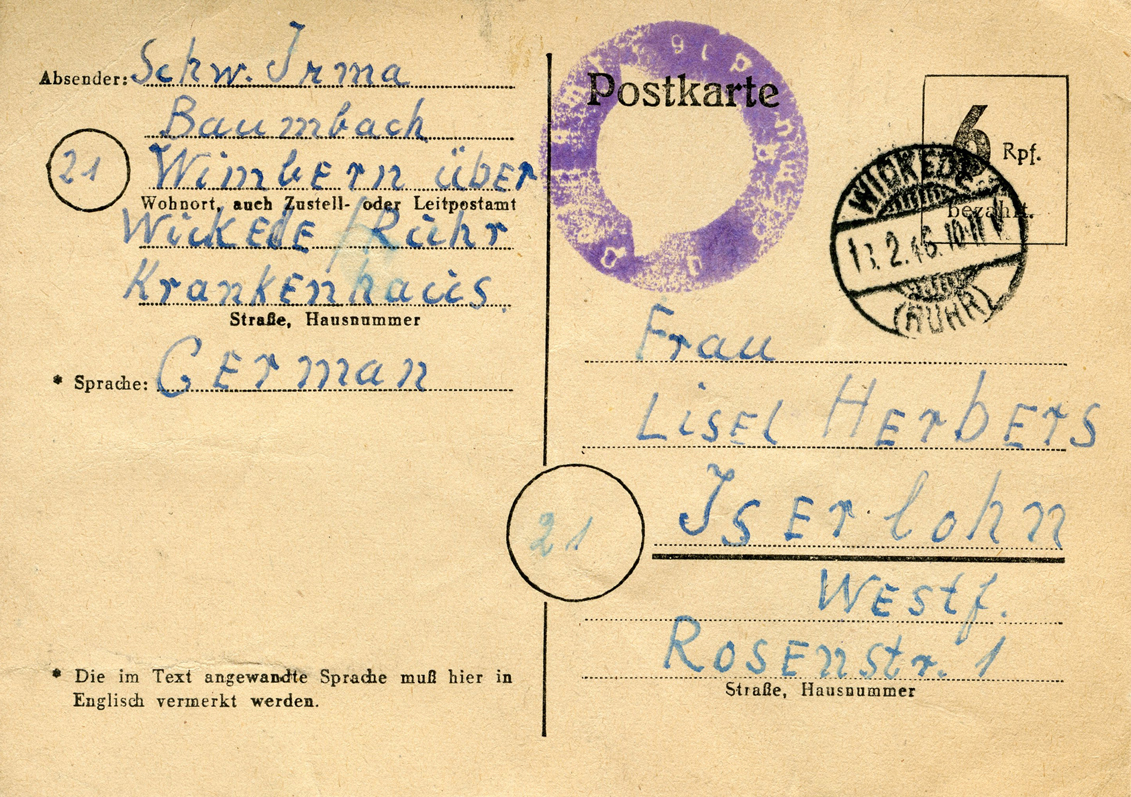 Absender: Schw. Irma
Baumbach
21
Wimbern über
Wohnort, auch Zustell- oder Leitpostamt
Wickede/Ruhr
Krankenhaus.
Straße, Hausnummer
* Sprache: German
* Die im Text angewandte Sprache muß hier in
Englisch vermerkt werden.
Postkarte
6 Rpf.
bezahlt.
WICKEDE
2.46.10-11 V
(RUHR)
Frau
Lisel Herbers
21
Iserlohn
Westf.
Rosenstr. 1
Straße, Hausnummer